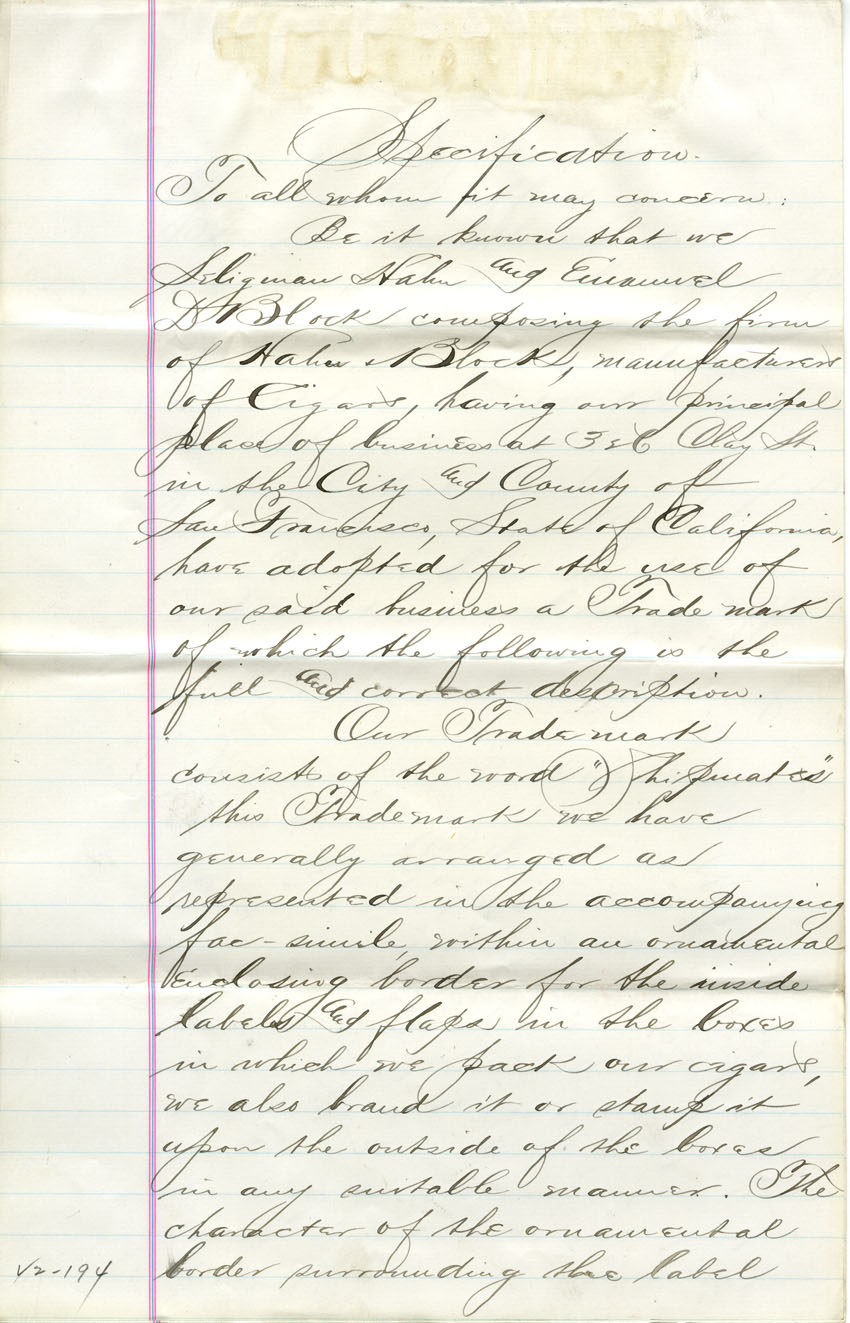 Specification.
To all whom it may concern:
Be it known that we
Seligman Hahn and Emanuel
D Block composing the firm
of Hahn & Block, manufacturers
of Cigars, having our principal
place of business at Clay St.
in the City and County of
San Francisco, State of California,
have adopted for the use of
our said business a Trade mark
of which the following is the
full and correct description.
Our Trade mark
consists of the word "Shipmates"
this Trade mark we have
generally arranged as
represented in the accompanying
fac-simile, within an ornamental
enclosing border for the inside
labels and flaps in the boxes
in which we pack our cigars,
we also brand it or stamp it
upon the outside of the boxes
in any suitable manner. The
character of the ornamental
border surrounding the label
V2-194